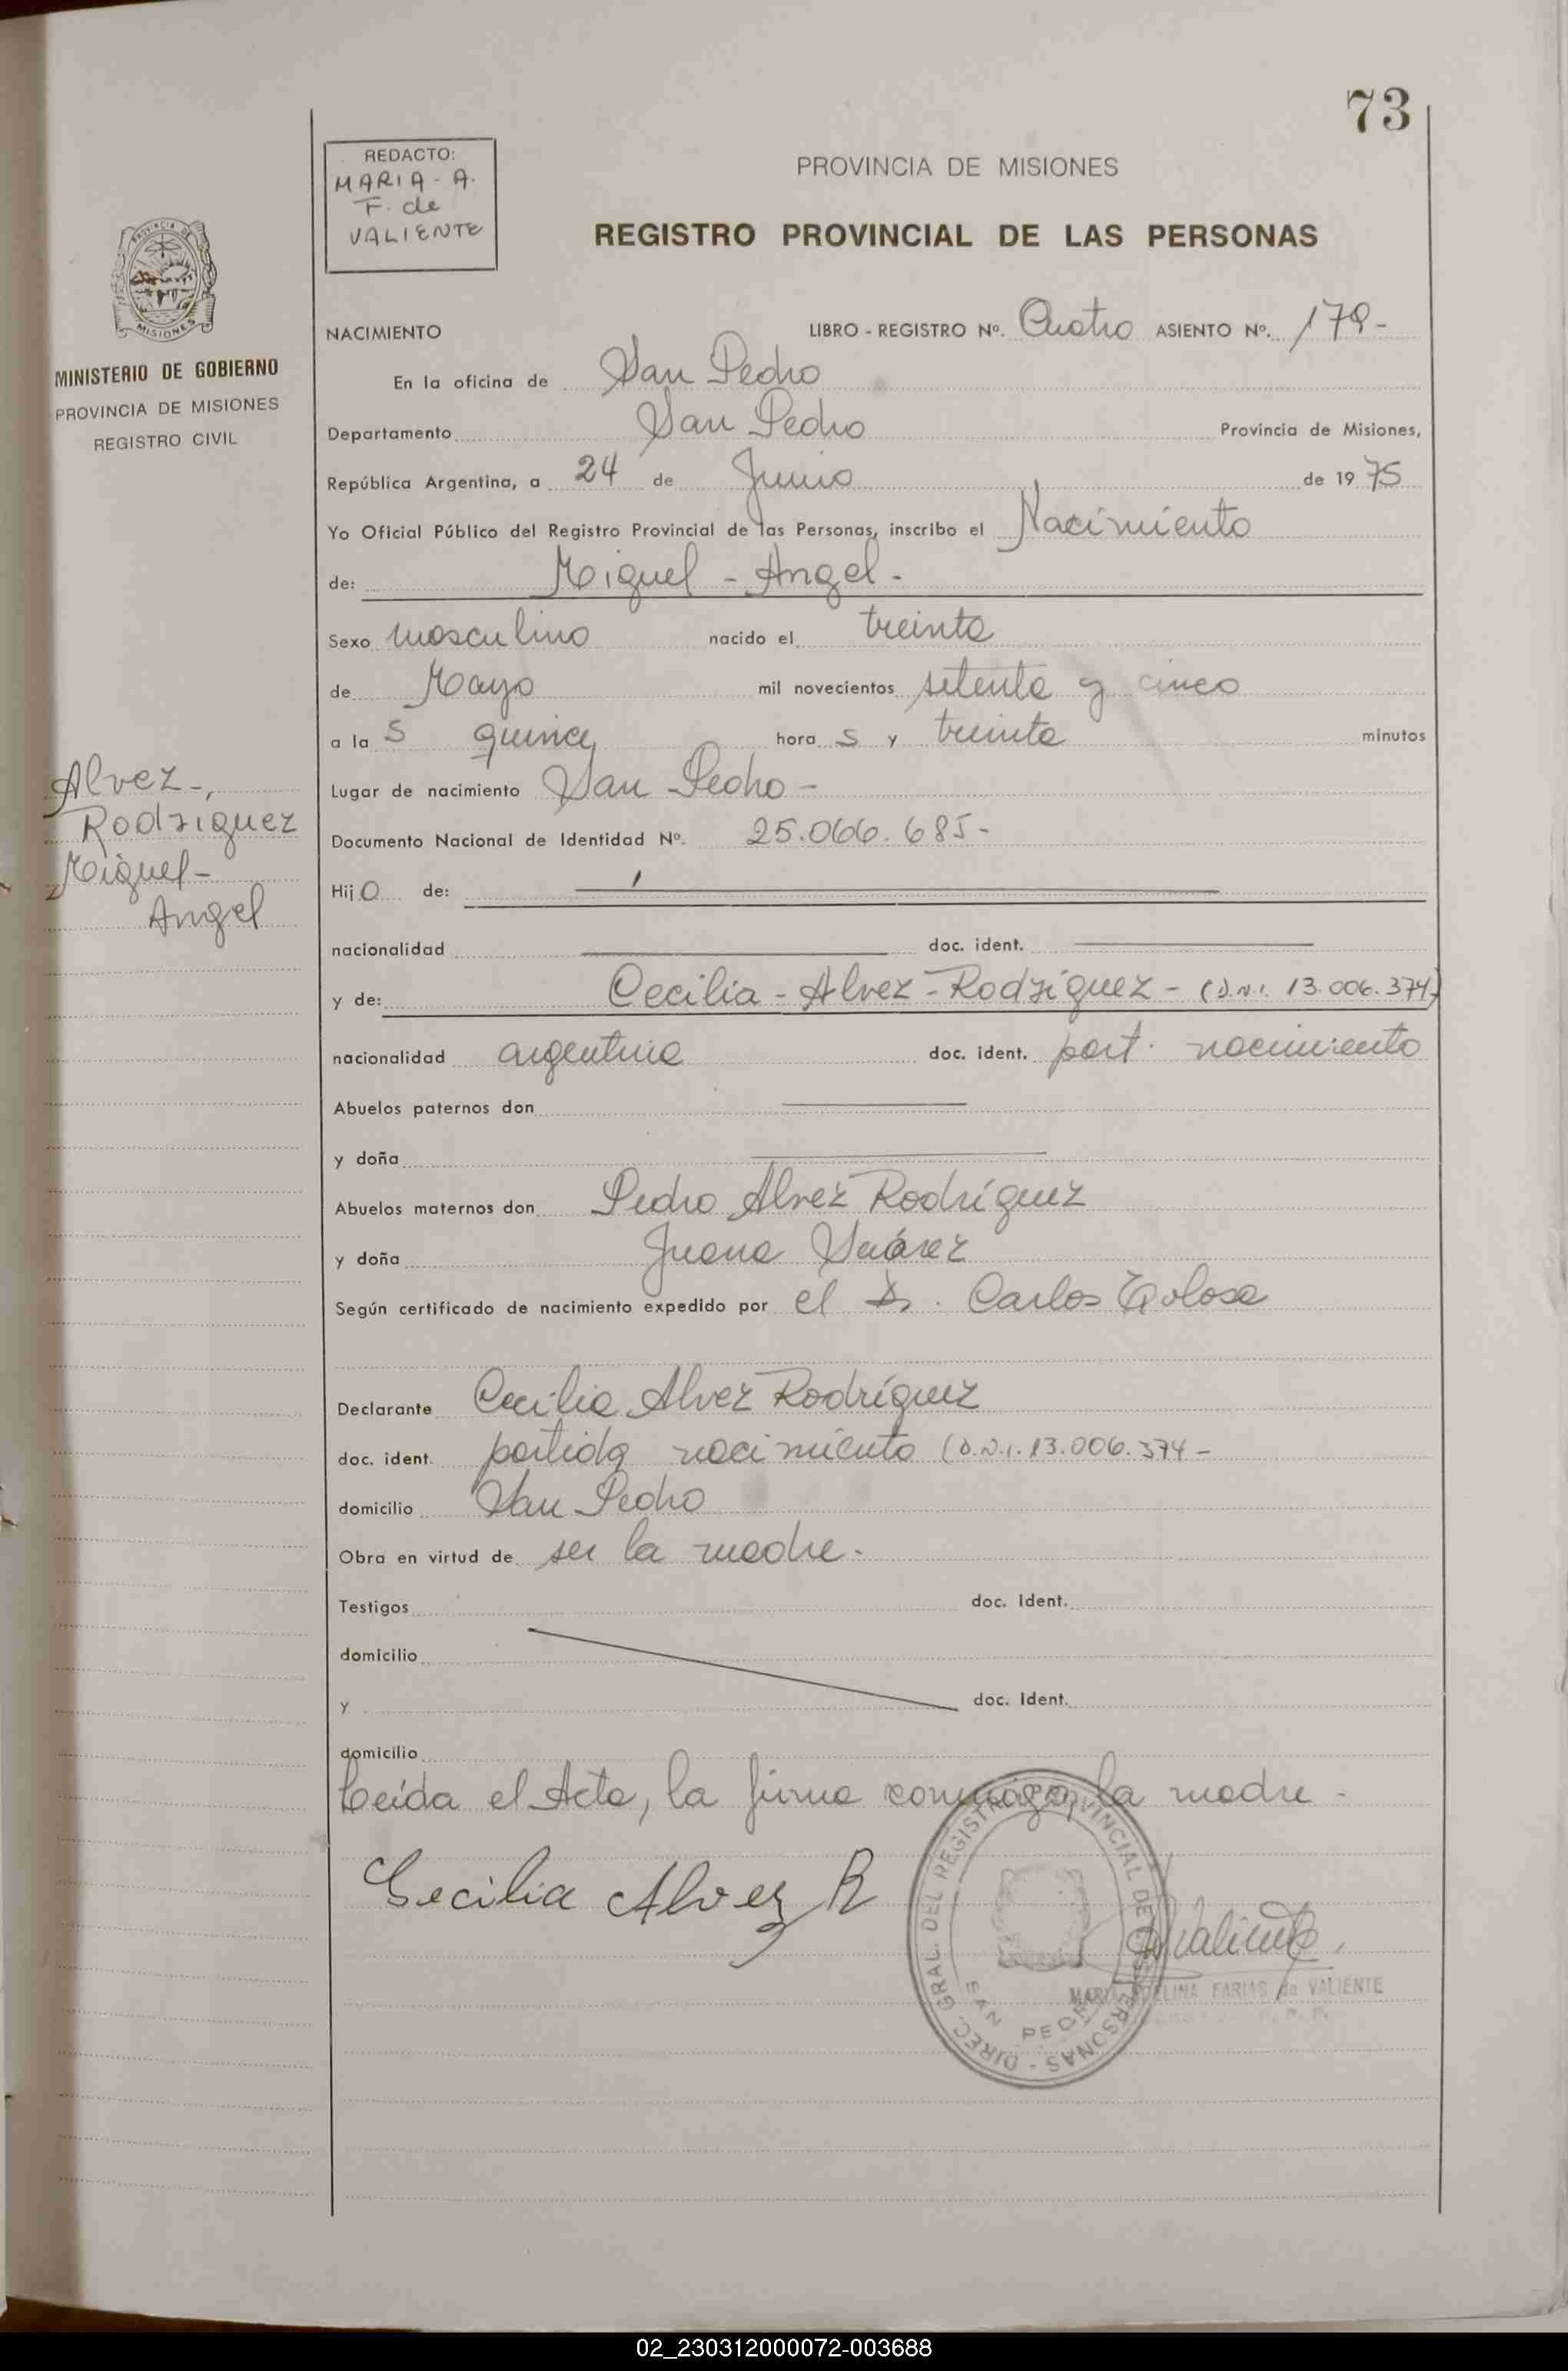 73
REDACTO:
MARIA - A.
F. de
VALIENTE
PROVINCIA DE MISIONES
REGISTRO PROVINCIAL DE LAS PERSONAS
PROVINCIA DE
MISIONES
MINISTERIO DE GOBIERNO
PROVINCIA DE MISIONES
REGISTRO CIVIL
NACIMIENTO LIBRO - REGISTRO Nº. Cuatro ASIENTO Nº. 179-
En la oficina de San Pedro
Departamento San Pedro Provincia de Misiones,
República Argentina, a 24 de Junio de 1975
Yo Oficial Público del Registro Provincial de las Personas, inscribo el Nacimiento
de: Miguel - Angel -
Sexo masculino nacido el treinta
de Mayo mil novecientos setenta y cinco
a la s quince hora s y treinta minutos
Lugar de nacimiento San Pedro -
Documento Nacional de Identidad Nº. 25.066.685-
Hijo de:
nacionalidad doc. ident.
y de: Cecilia - Alvez - Rodríguez - (D.N.I. 13.006.374)
nacionalidad argentina doc. ident. part. nacimiento
Abuelos paternos don
y doña
Abuelos maternos don Pedro Alvez Rodríguez
y doña Juana Suárez
Según certificado de nacimiento expedido por el Dr. Carlos Tolosa
Declarante Cecilia Alvez Rodríguez
doc. ident. partida nacimiento (D.N.I. 13.006.374 -
domicilio San Pedro
Obra en virtud de ser la madre.
Testigos doc. Ident.
domicilio
y doc. ident.
domicilio
Leída el Acta, la firma conmigo, la madre -
Cecilia Alvez R
Valiente
MARIA ADELINA FARIAS de VALIENTE
DIREC. GRAL. DEL REGISTRO PROVINCIAL DE LAS PERSONAS -
SAN PEDRO
Alvez -,
Rodriguez
Miguel -
Angel
02_230312000072-003688